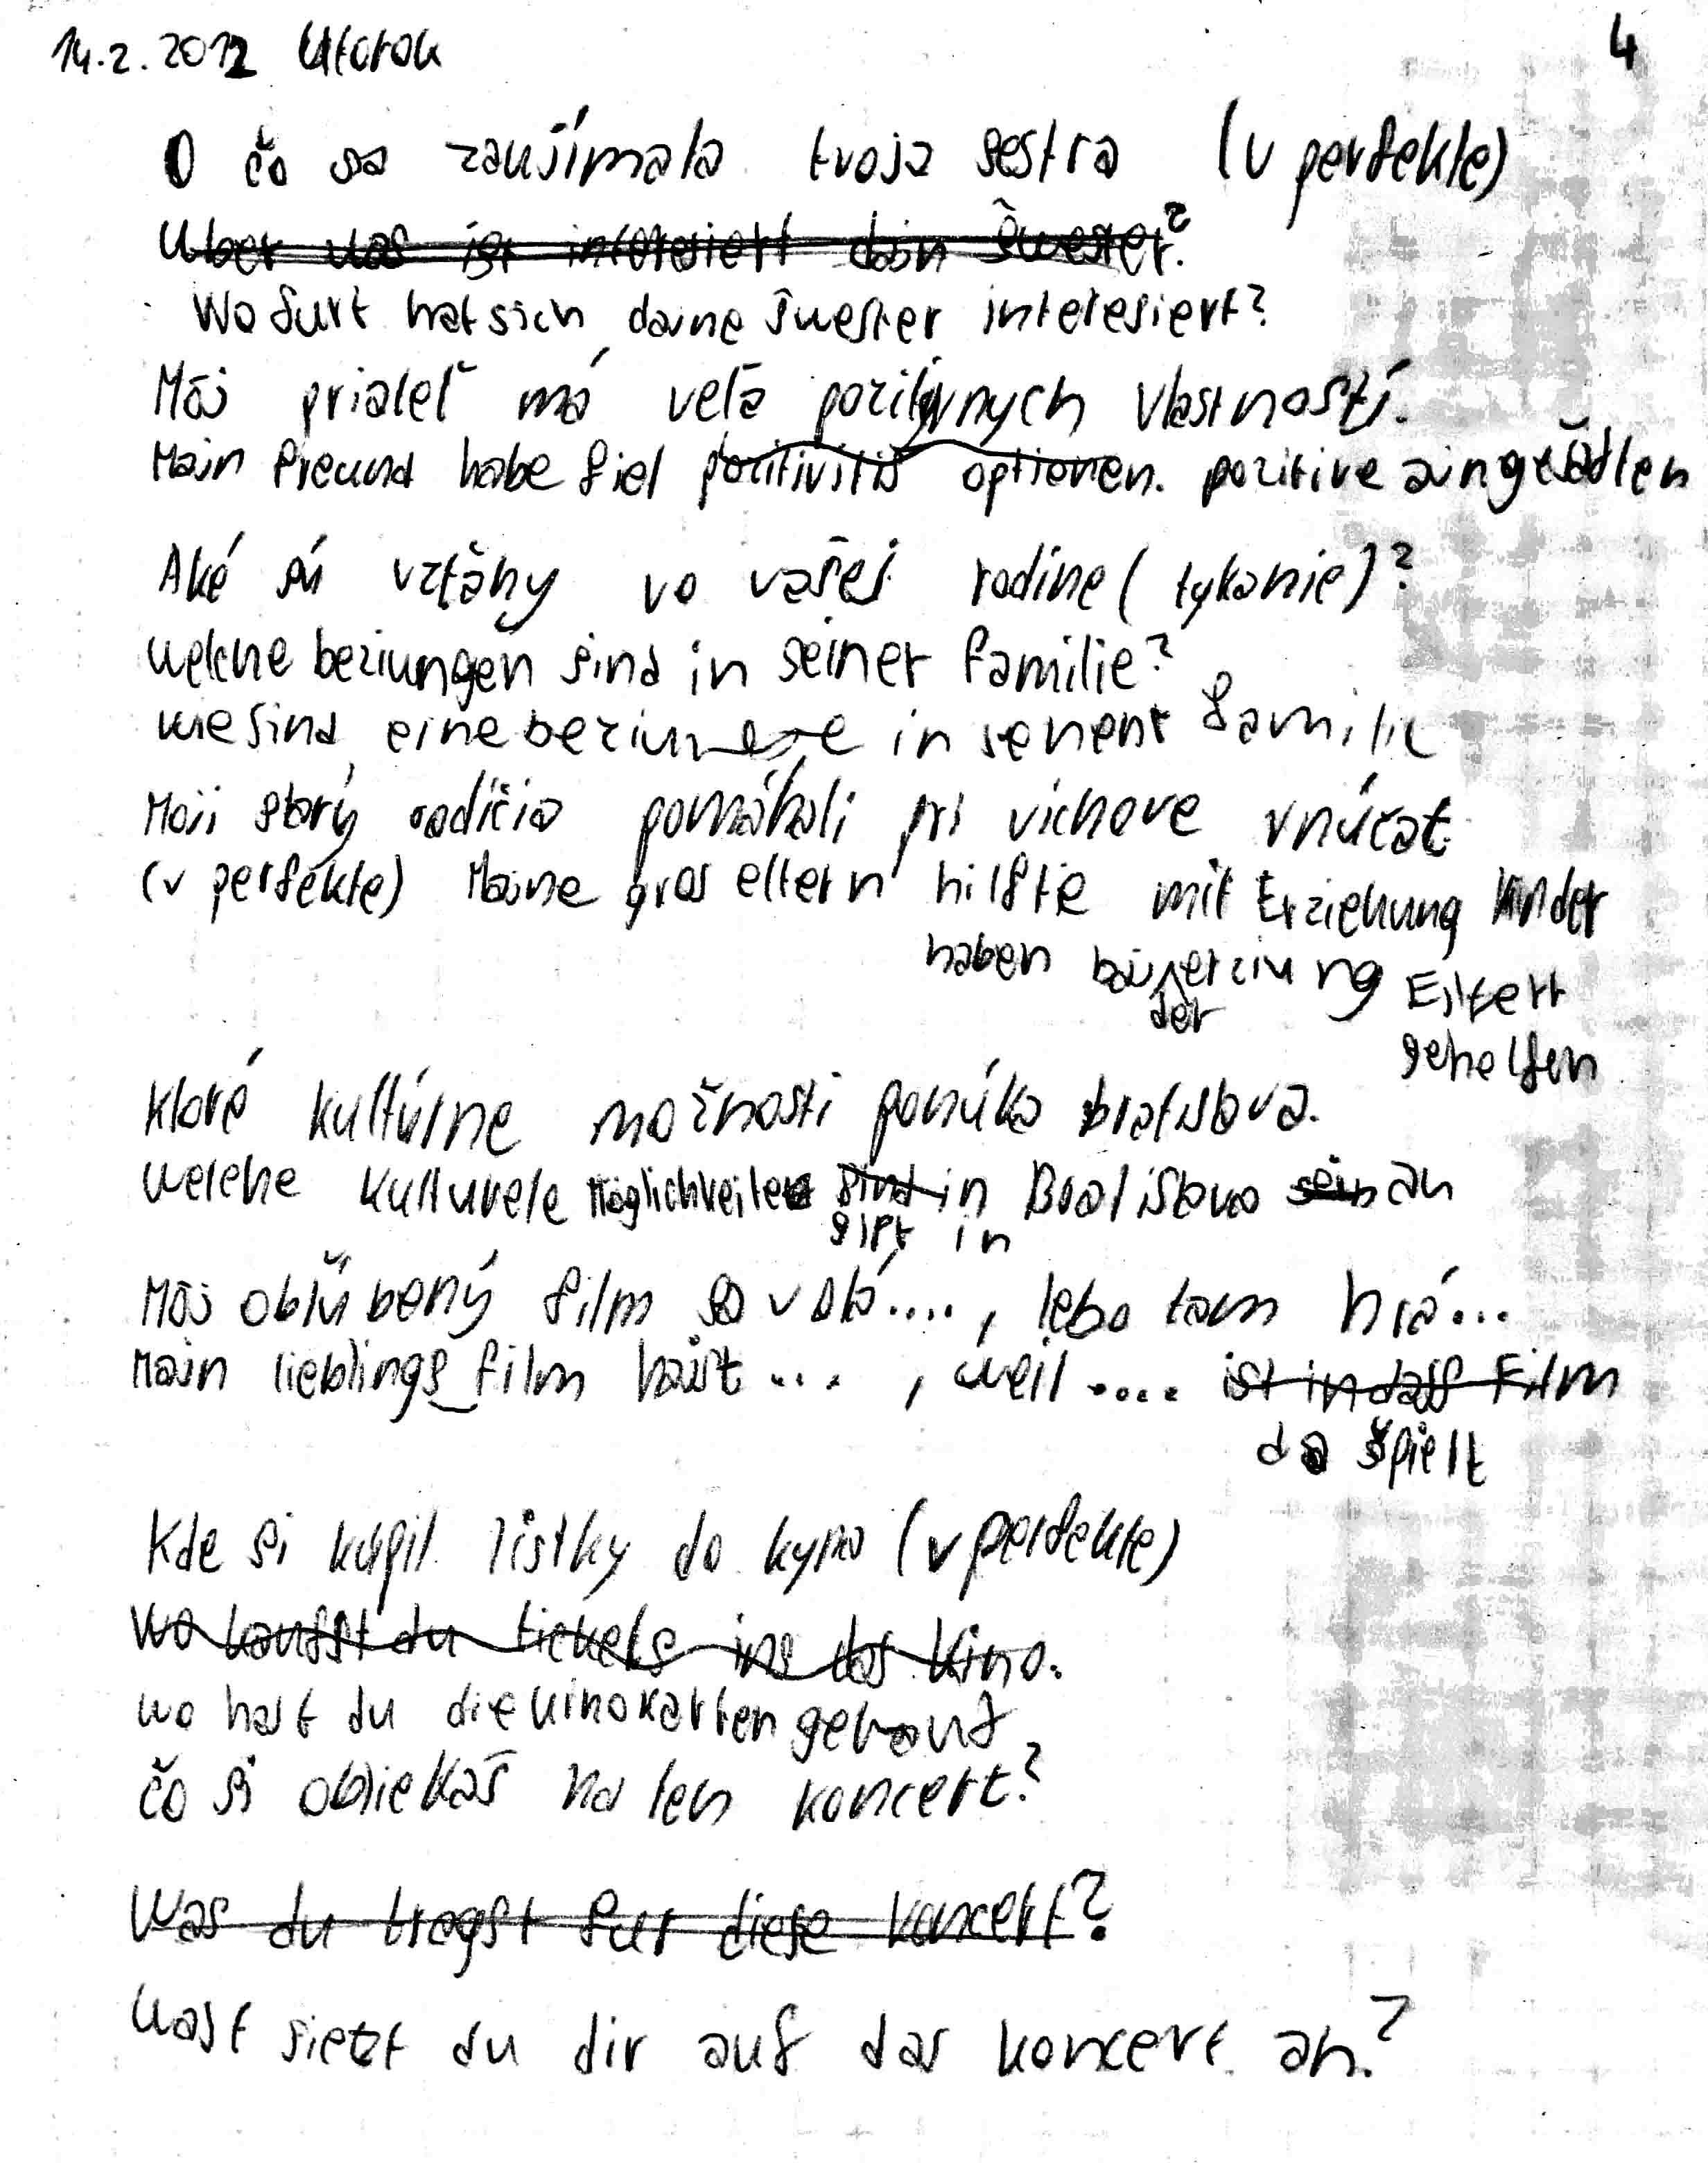 14.2.2012 Utorok 4
O čo sa zaušímala tvoja sestra (v perfekte)
Uber was ist interesiert dain Šwester?
Wofurt hat sich daine šwester interesiert?
Môj priateľ má veľa pozitívnych vlastností.
Main Freund habe fiel pozitivitis optionen. pozitive aingešädlen
Aké sú vzťahy vo vašej rodine (tykanie)?
welche beziungen sind in seiner familie?
wie sind eine in familie
Moji starý rodičia pomáhali pri víchove vnúčat
(v perfekte) Maine gros eltern hilfte mit Erziehung kinder
haben bai erziung
der
gehelfen
Ktoré kultúrne možnosti ponúka bratislava.
welche kulturele Möglichkeiten sind in Bratislava sein an
gipt in
Môj obľúbený film sa volá...., lebo tam hrá...
Main lieblings film haist ..., weil .... ist in dass Film
da špielt
Kde si kúpil lístky do kyna (v perfekte)
Wo kaufst du tickets ins das Kino.
wo hast du die kinokarten gekauf
čo si obliekaš na ten koncert?
Was du tragst fur diese koncert?
wast sietzt du dir auf das koncert an?